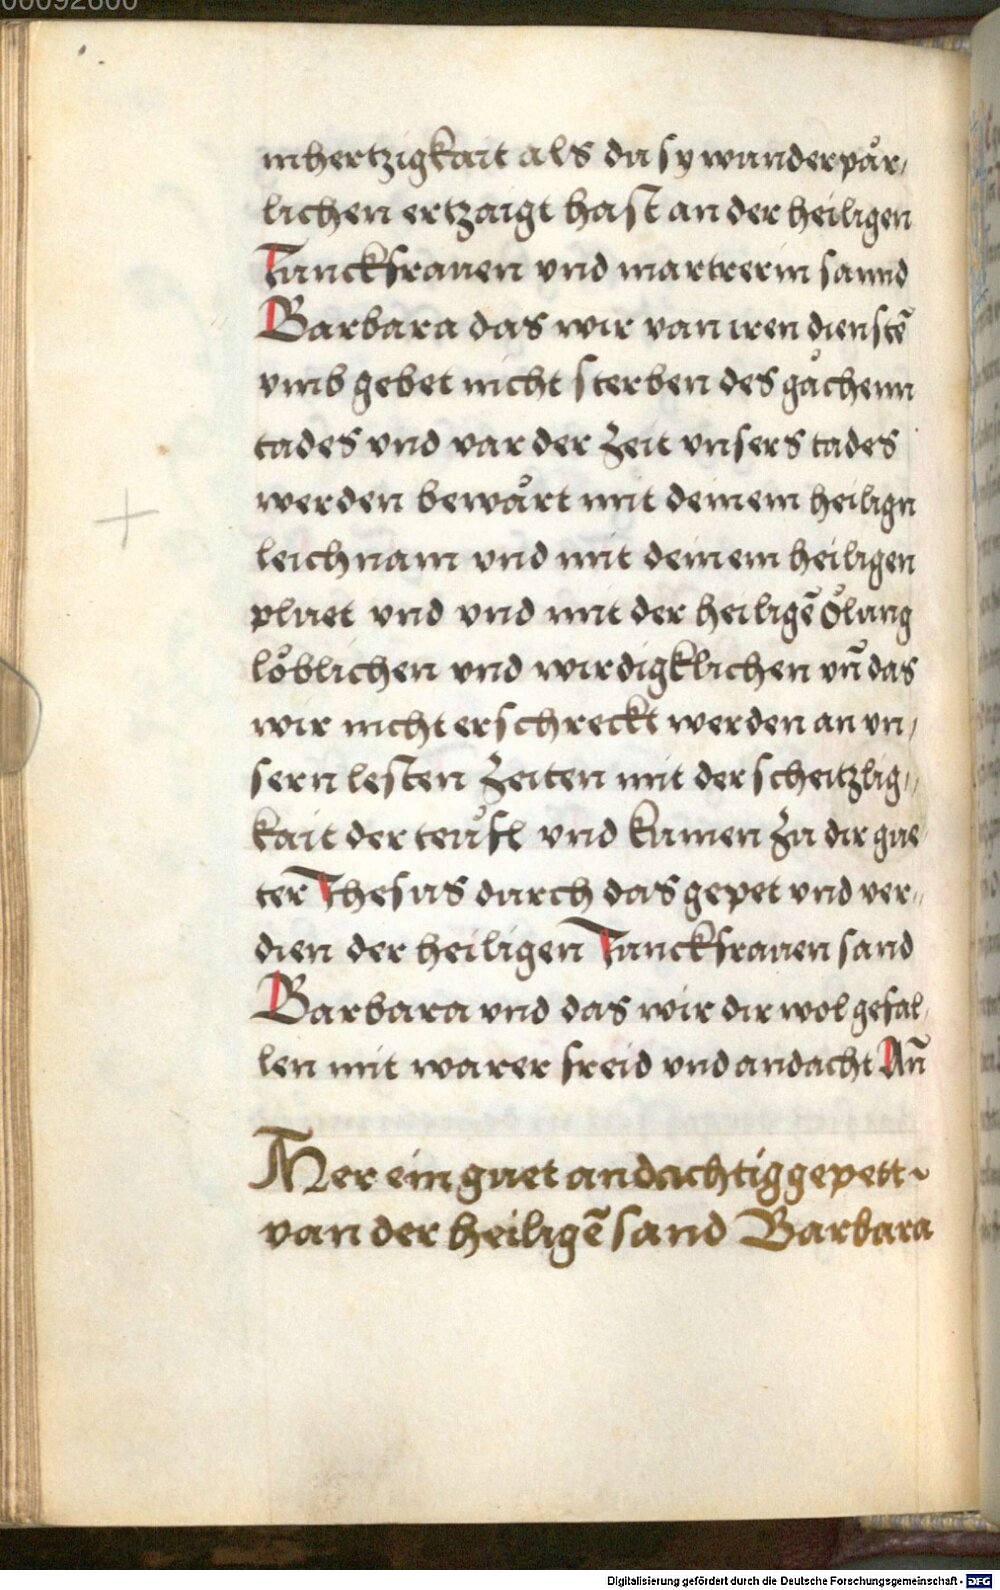 00092800
mhertzigkait als du sy wunderpär-
lichen ertzaigt hast an der heiligen
Junckfrauen vnd martrerin sannd
Barbara das wir van iren dienstē
vmb gebet nicht sterben des gächenn
tades vnd var der zeit vnsers tades
werden bewärt mit deinem heilign
leichnam vnd mit deinem heiligen
pluet vnd vnd mit der heiligē ölung
löblichen vnd wirdigklichen vn̄ das
wir nicht erschreckt werden an vn-
sern lesten zeiten mit der scheitzlig-
kait der teüfl vnd kumen zu dir gue-
ter Jhesus durch das gepet vnd ver-
dien der heiligen Junckfrauen sand
Barbara vnd das wir dir wol gefal-
len mit warer freid vnd andacht Am̄
Mer ein guet andachtig gepett
van der heiligē sand Barbara
Digitalisierung gefördert durch die Deutsche Forschungsgemeinschaft - DFG